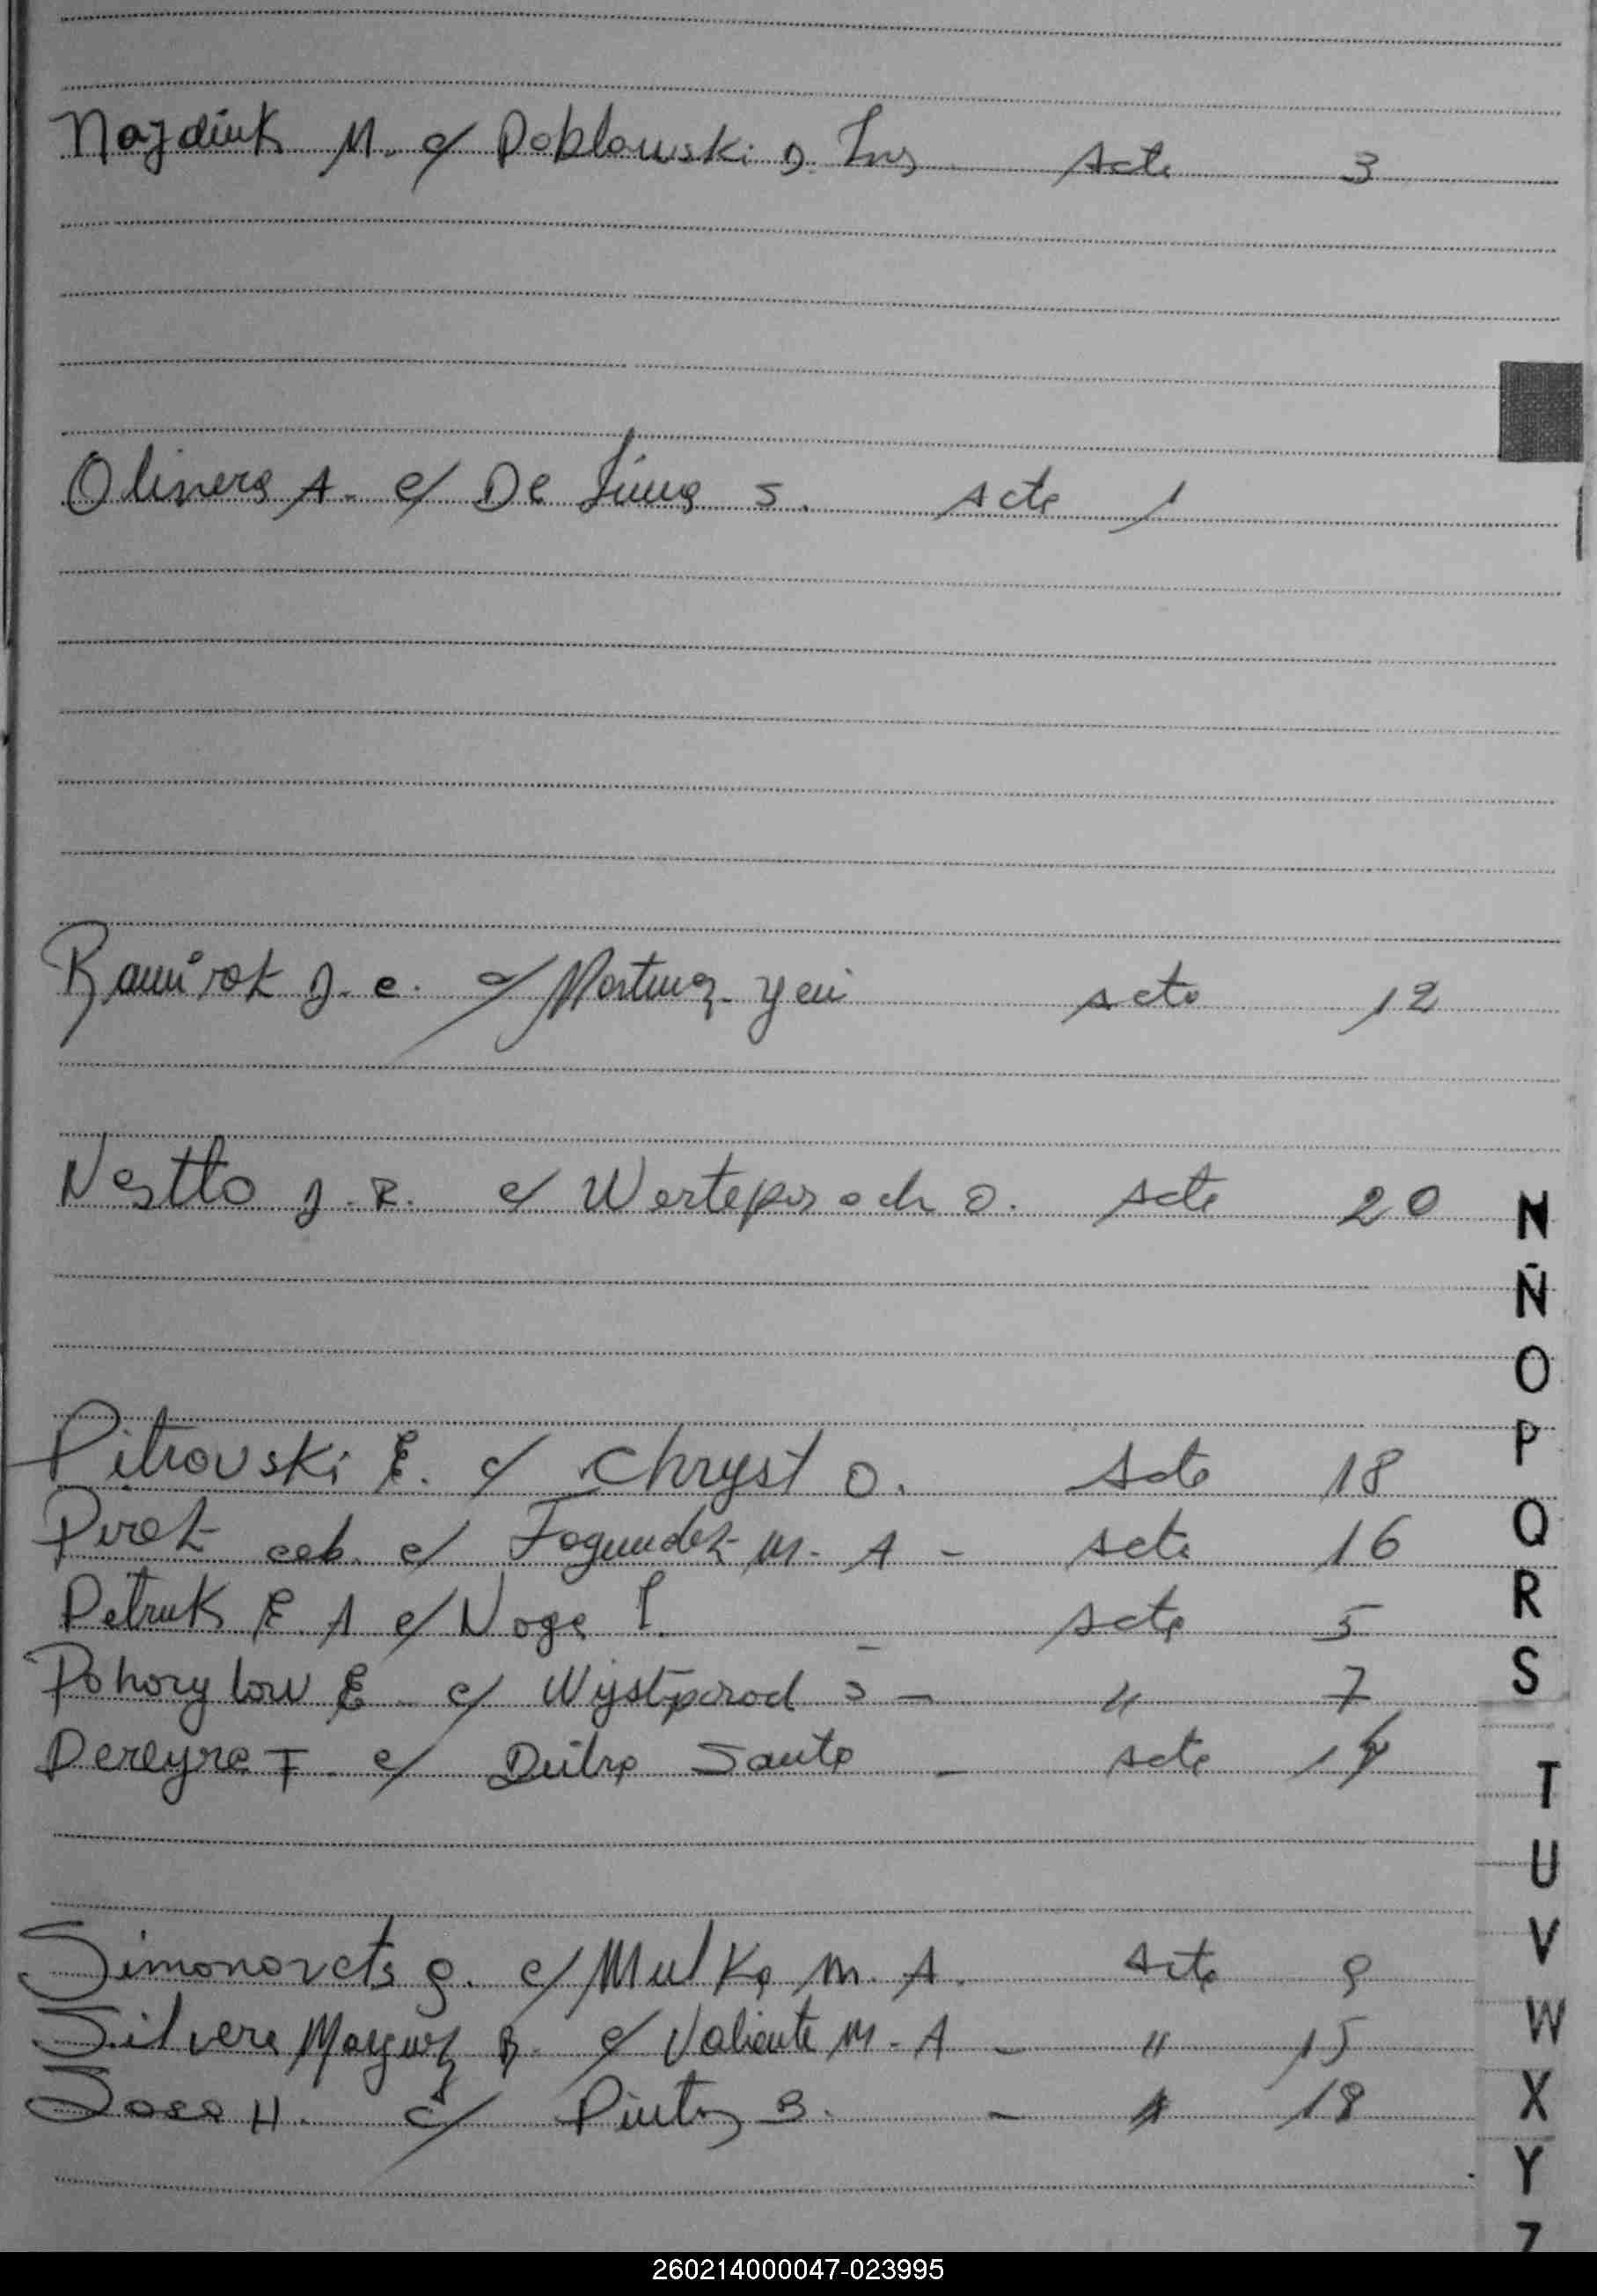 Nazdiuk M. c/ Poblowski D. Ins Acta 3
Olivera A. c/ De Lima S. Acta 1
Ramirez J. C. c/ Martinez Acta 12
Nestto J. R. c/ O. Acta 20
Pitrovski E. c/ Chryst O. Acta 18
Perez c/ Fagundez M. A - Acta 16
Petruk E. A c/ Noga I. Acta 5
Pohorylow E. c/ S - " 7
Pereyra F. c/ Santo - Acta 14
Simonovets c/ Mulka M. A. Acta 9
Silvera B. c/ Valiente M. A - " 15
Sosa H. c/ Pinto B. - " 18
N
Ñ
O
P
Q
R
S
T
U
V
W
X
Y
Z
260214000047-023995